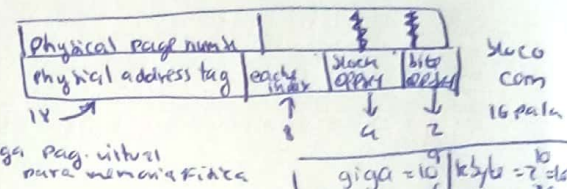 physical page numb
physical address tag | cache index | block offset | bite offset
bloco com 16 pala
18
8 4 2
ga pag. virtual
para memoria física
giga = 10^9 | kbyte = 2^10